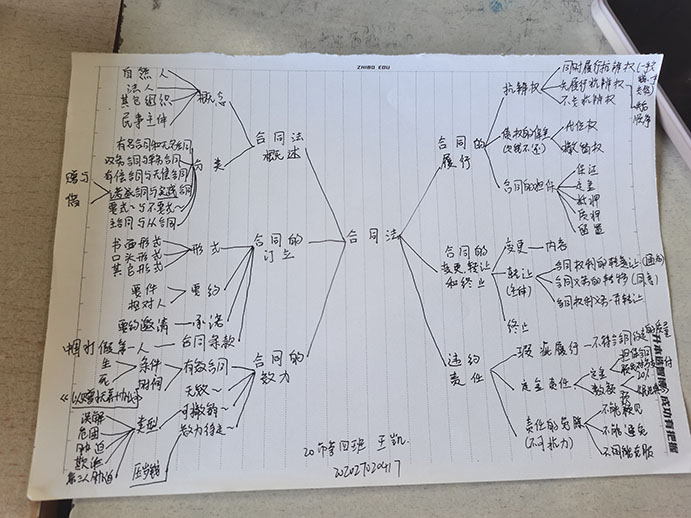 ZHIBO EDU
合同法
合同法
概述
概念
自然人
法人
其它组织
民事主体
分类
有名合同和无名合同
双务合同与单务合同
有偿合同与无偿合同
诺成合同与实践合同
要式~与不要式~
主合同与从合同
赠与
合同的
订立
形式
书面形式
口头形式
其它形式
要约
要件
相对人
要约邀请
承诺
合同条款
合同的
效力
有效合同
条件
附间
生
死
无效~
可撤销~
类型
误解
危困
胁迫
欺诈
第三人胁迫
效力待定~
合同的
履行
抗辩权
同时履行抗辩权
先履行抗辩权
不安抗辩权
先后
顺序
债权的保全
代位权
撤销权
合同的担保
保证
定金
抵押
质押
留置
合同的
变更、转让
和终止
变更
内容
转让
合同权利的转让(通知)
合同义务的转移(同意)
合同权利义务一并转让
终止
违约
责任
瑕疵履行
定金责任
定金
数额
20%
责任的免除
(不可抗力)
不能预见
不能避免
不能克服
升本选智博 成功有把握